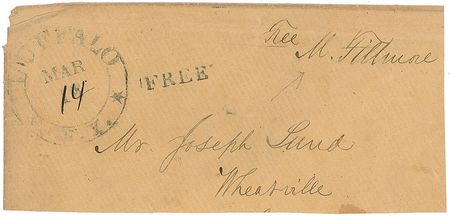 BUFFALO
MAR
14
N.Y.
FREE
Free
M. Fillmore
Mr Joseph Lund
Wheatville